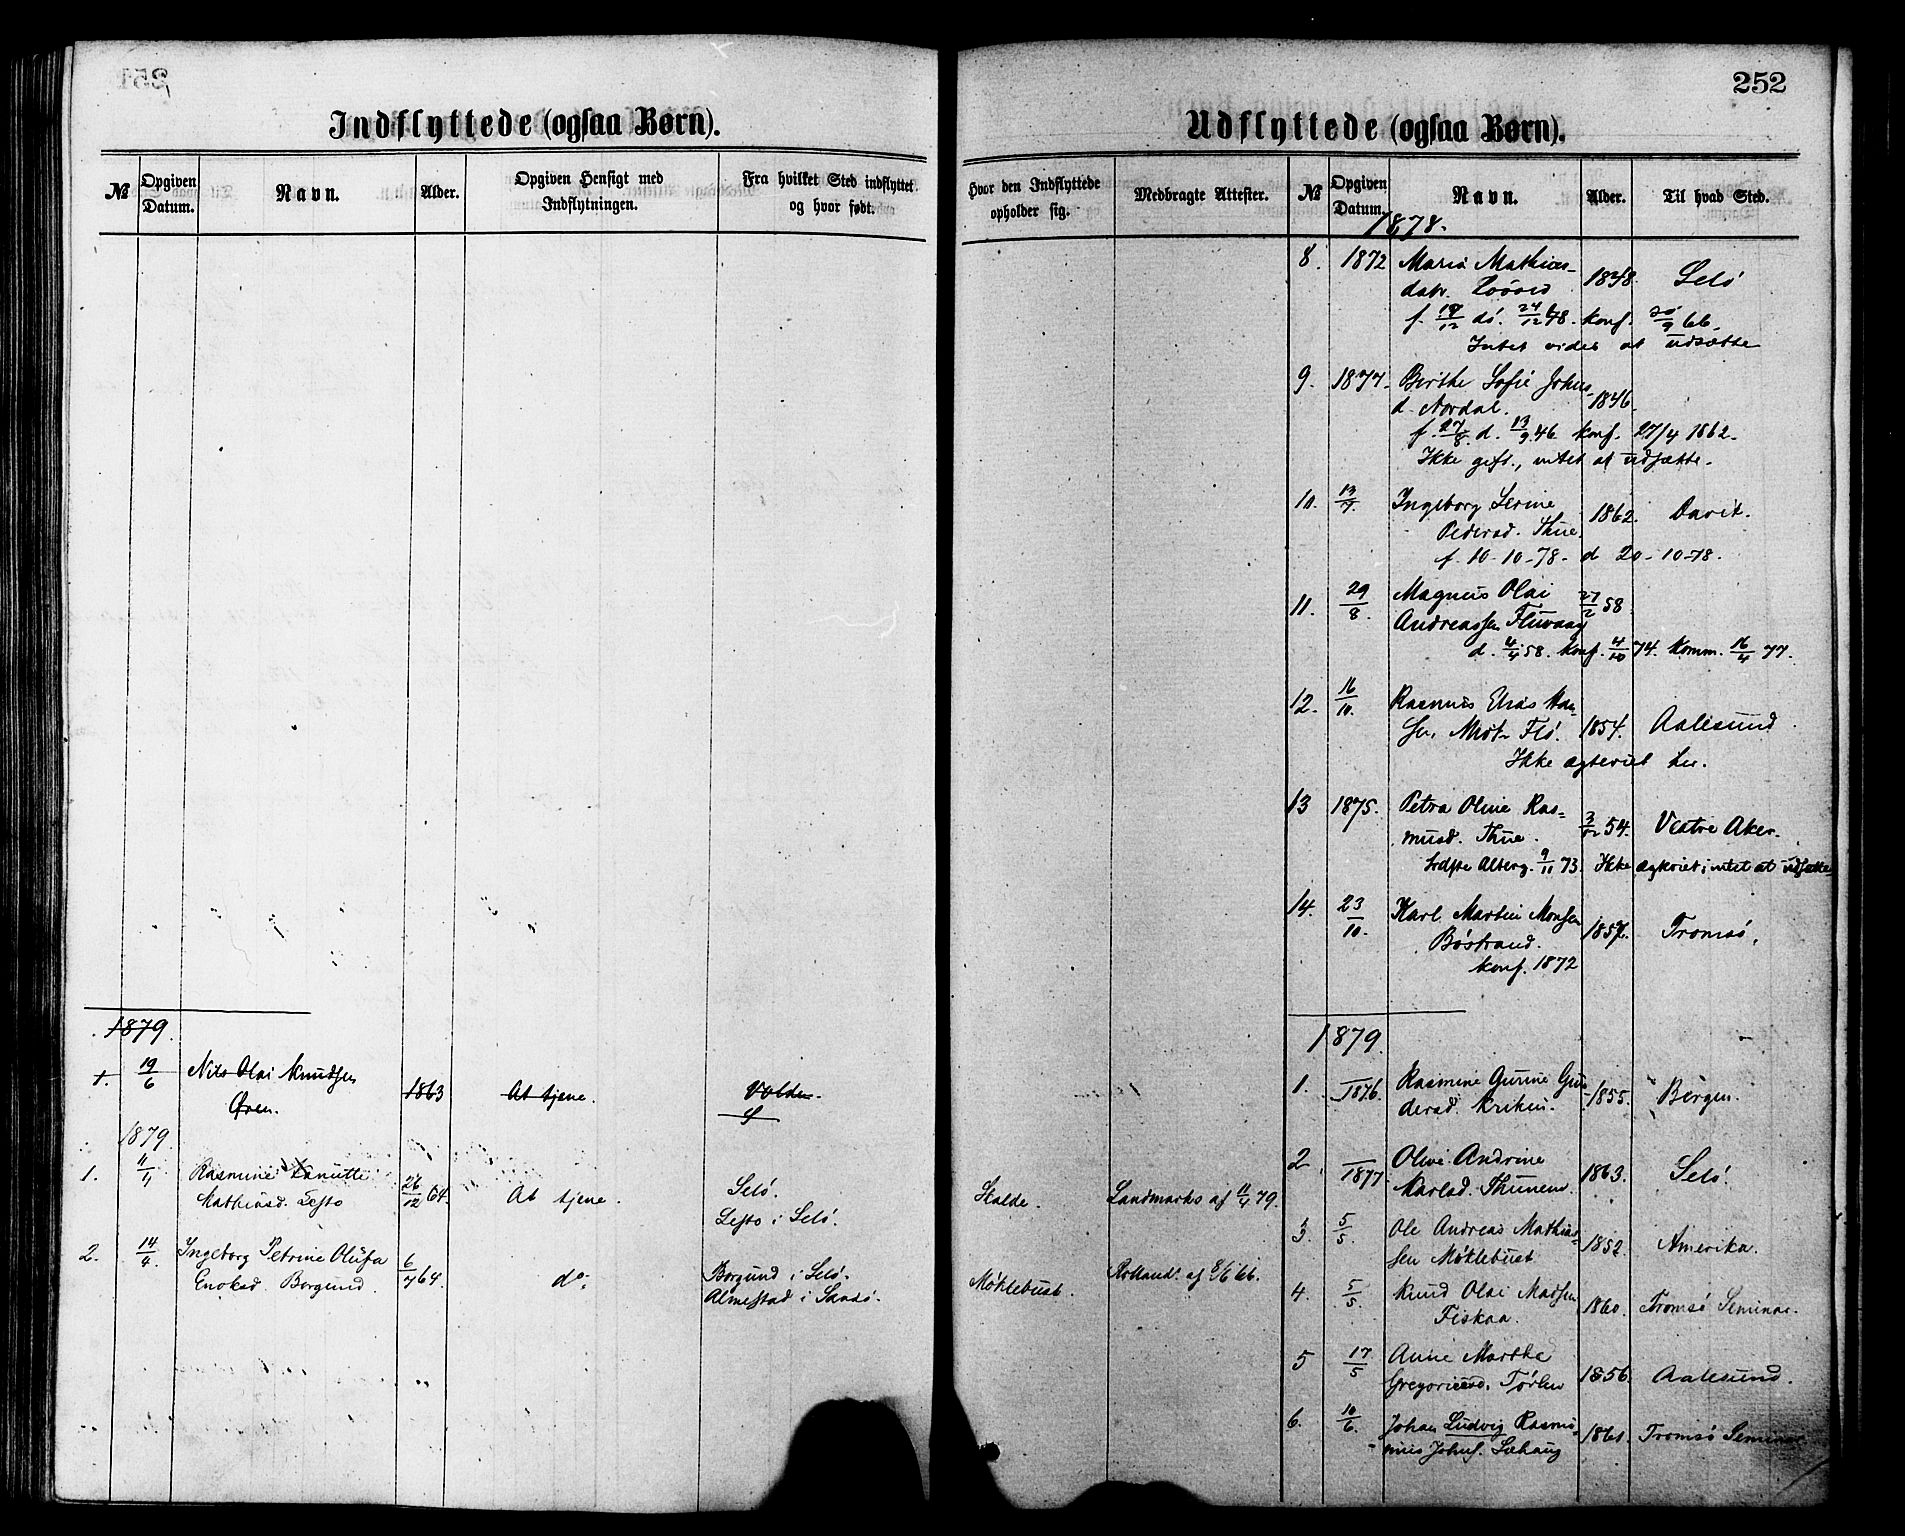 252
Indflyttede (ogsaa Børn).
№
Opgiven Datum.
Navn.
Alder.
Opgiven Hensigt med Indflytningen.
Fra hvilket Sted indflyttet og hvor født.
1879.
1. 19/6 Nils Olai Knudsen 1863 At tjene. Volden.
Øren.
1879
1. 11/4 Rasmine Lanutte 26/12 64. At tjene. Selö.
Mathiasd. Lesto Lesto i Selö.
2. 14/4. Ingeborg Petrine Olufa 6/7 64. do. Borgund i Selö.
Enoksd. Borgund. Almestad i Sandö.
Hvor den Indflyttede opholder sig.
Medbragte Attester.
Skalde. Landmarks af 11/4 79.
Möklebust. af 8/6 66.
Udflyttede (ogsaa Børn).
№
Opgiven Datum.
Navn.
Alder.
Til hvad Sted.
1878.
8. 1872 Maria Mathias- 1848. Selö
datr.
f. 19/12 dö. 24/12 48. konf. 30/9 66.
Intet vides at udsætte
9. 1877. Berthe Sofie Johns-
d. Nordal. 1846.
f. 27/8. d. 13/9 46 konf. 27/4 1862.
Ikke gift, intet at udsætte.
10. 13/7. Ingeborg Serine 1862. Davik.
Pedersd. Thue.
f. 10-10-78. d 20-10-78.
11. 29/8. Magnus Olai 27/2 58
Andreassen Fluvaag
d. 4/4 58. konf. 4/10 74. Komm. 16/4 77.
12. 16/10. Rasmus Elias Han-
sen Möt- Flö. 1854. Aalesund.
Ikke ægteviet her.
13 1875. Petra Oline Ras-
musd. Thue. 3/12 54. Vestre Aker.
Sidste Alterg. 9/11 73. Ikke ægteviet, intet at udsætte
14. 23/10. Karl Martin Monsen 1857. Tromsö.
Böstrand.
konf. 1872
1879.
1. 1876. Rasmine Gurine Gun-
dersd. Kriken. 1855. Bergen.
2. 1877. Olive Andrine 1863. Selö.
Karlsd. Thunem.
3. 5/5 Ole Andreas Mathias- 1852. Amerika.
sen Möklebust
4. 5/5. Knud Olai Madsen 1860. Tromsö Seminar.
Fiskaa.
5 17/5 Anne Marthe
Gregoriusd. 1856. Aalesund.
6. 10/6. Johan Ludvig Rasmus- 1861. Tromsö Seminar
mus Johns. Sæhaug